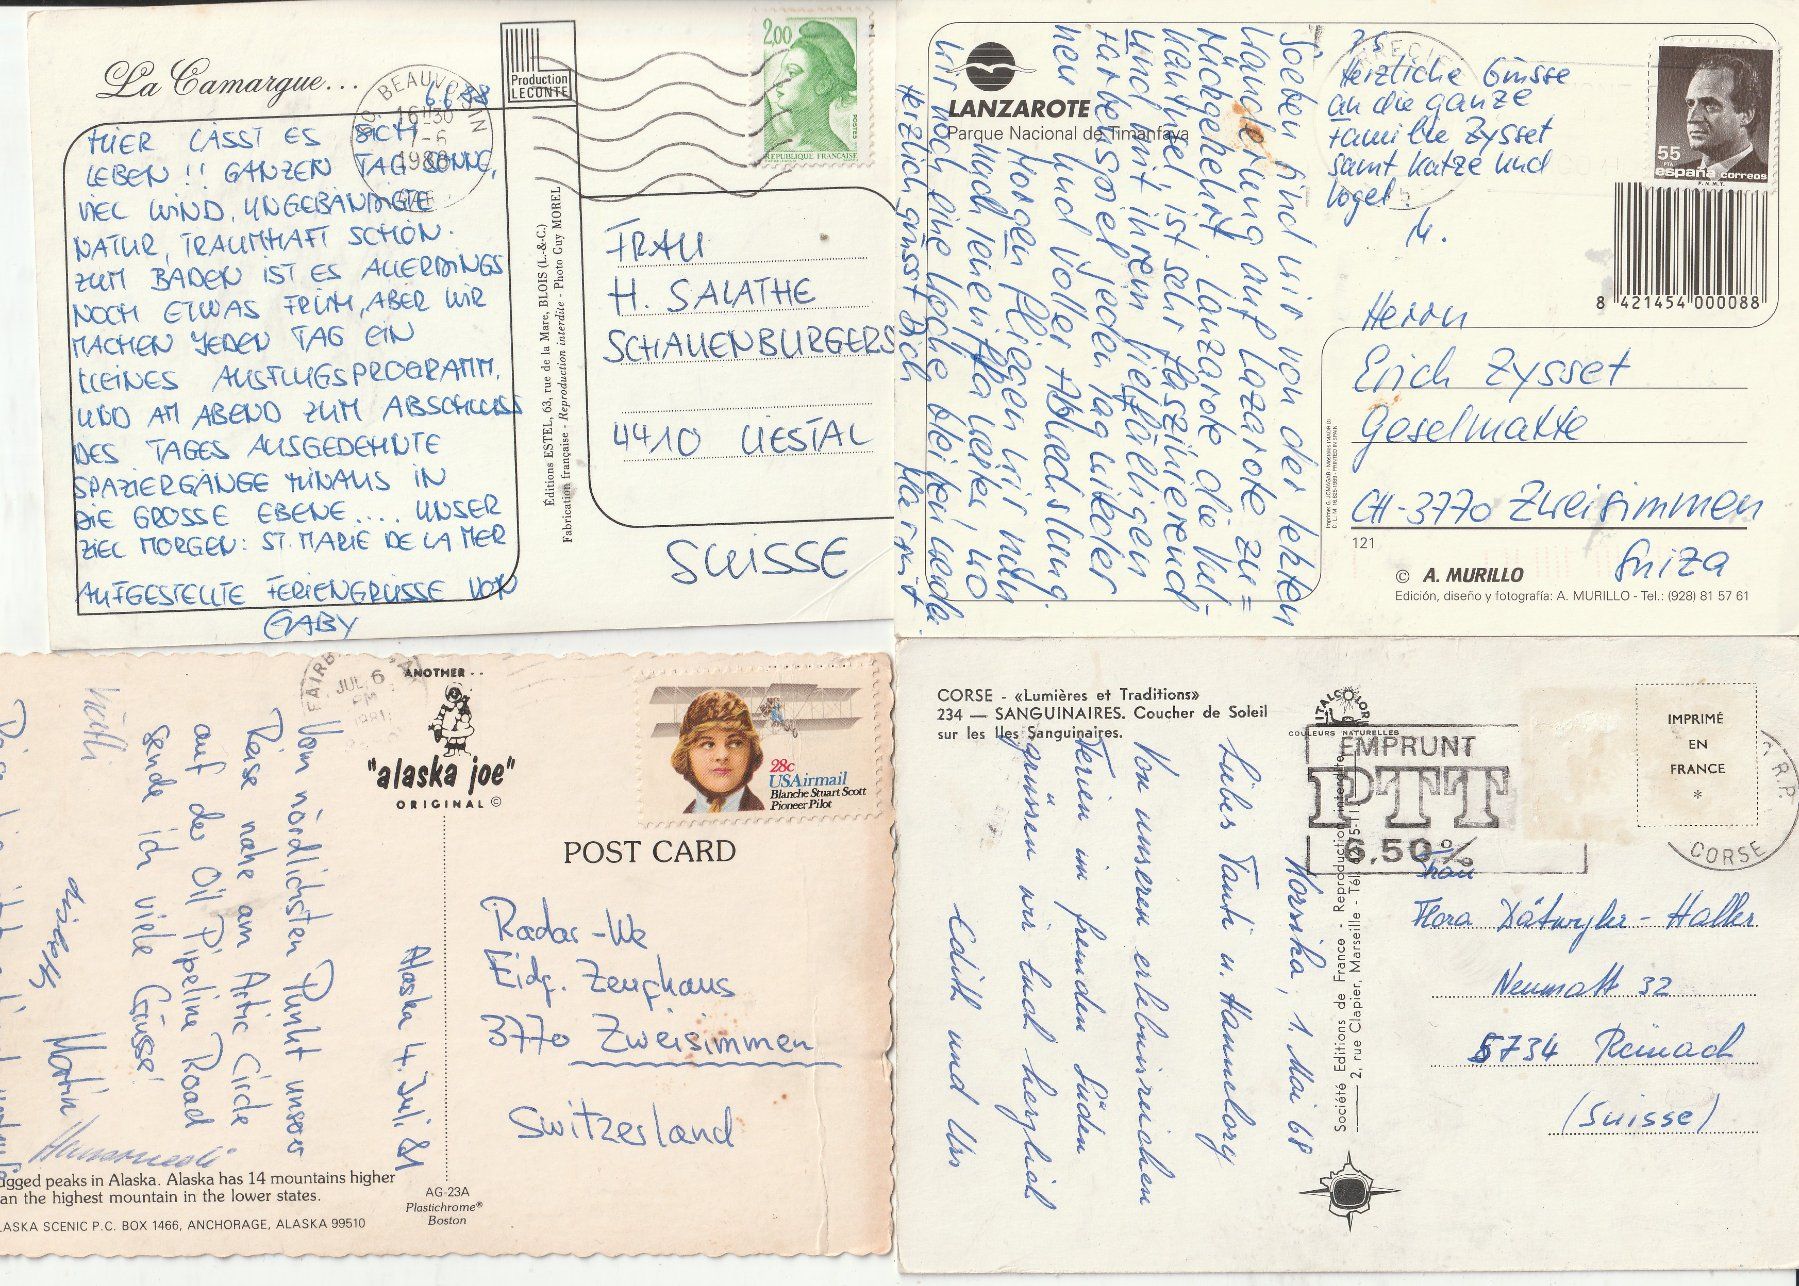 La Camargue...
6.6.88
BEAUVOISIN
16H30
7-6
1988
Production
LECONTE
2,00
POSTES
REPUBLIQUE FRANÇAISE
HIER LÄSST ES SICH
LEBEN !! GANZEN TAG SONNE,
VIEL WIND, UNGEBÄNDIGTE
NATUR, TRAUMHAFT SCHÖN.
ZUM BADEN IST ES ALLERDINGS
NOCH ETWAS FRÜH, ABER WIR
MACHEN JEDEN TAG EIN
KLEINES AUSFLUGSPROGRAMM.
UND AM ABEND ZUM ABSCHLUSS
DES TAGES AUSGEDEHNTE
SPAZIERGÄNGE HINAUS IN
DIE GROSSE EBENE.... UNSER
ZIEL MORGEN: ST. MARIE DE LA MER
AUFGESTELLTE FERIENGRÜSSE VON
GABY
Éditions ESTEL, 63, rue de la Mare, BLOIS (L.-&-C.)
Fabrication française - Reproduction interdite - Photo Guy MOREL
FRAU
H. SALATHE
SCHAUENBURGERS
4410 LIESTAL
SUISSE
LANZAROTE
Parque Nacional de Timanfaya
Soeben sind wir von der letzten
Wanderung auf Lazarote zu=
rückgekehrt. Lanzarote die Vul-
kaninsel, ist sehr faszinierend
und mit ihrem vielfältigen
Farbenspiel jeden Tag wieder
neu und voller Abwechslung.
Morgen fliegen wir nun
nach Teneriffa wo wir
wir noch eine Woche bleiben werden.
Herzlich grüsst Dich
Herzliche Grüsse
an die ganze
Familie Zysset
samt Katze und
Vogel.
M.
55
PTA
españa correos
F.N.M.T.
8 421454 000088
Herrn
Erich Zysset
Goselmatte
CH-3770 Zweisimmen
Suiza
121
© A. MURILLO
Edición, diseño y fotografía: A. MURILLO - Tel.: (928) 81 57 61
JUL 6
PM
1981
ANOTHER..
"alaska joe"
ORIGINAL ©
28c
USAirmail
Blanche Stuart Scott
Pioneer Pilot
POST CARD
Alaska 4. Juli 81
Vom nördlichsten Punkt unserer
Reise nahe am Artic Circle
auf der Oil Pipeline Road
sende ich viele Grüsse!
Martin
Radar-We
Eidg. Zeughaus
3770 Zweisimmen
Switzerland
gged peaks in Alaska. Alaska has 14 mountains higher
an the highest mountain in the lower states.
LASKA SCENIC P.C. BOX 1466, ANCHORAGE, ALASKA 99510
AG-23A
Plastichrome®
Boston
CORSE - «Lumières et Traditions»
234 — SANGUINAIRES. Coucher de Soleil
sur les Iles Sanguinaires.
ITALCOLOR
COULEURS NATURELLES
EMPRUNT
PTT
6,50%
IMPRIMÉ
EN
FRANCE
*
CORSE
Korsika, 1. Mai 68
Liebes Tanti u. Hannelory
Von unseren erlebnisreichen
Ferien im fremden Süden
grüssen wir Euch herzlich
Edith und Urs
Société Editions de France - Reproduction interdite
2, rue Clapier, Marseille - Tél.
Frau
Flora Dätwyler-Haller
Neumatt 32
5734 Reinach
(Suisse)